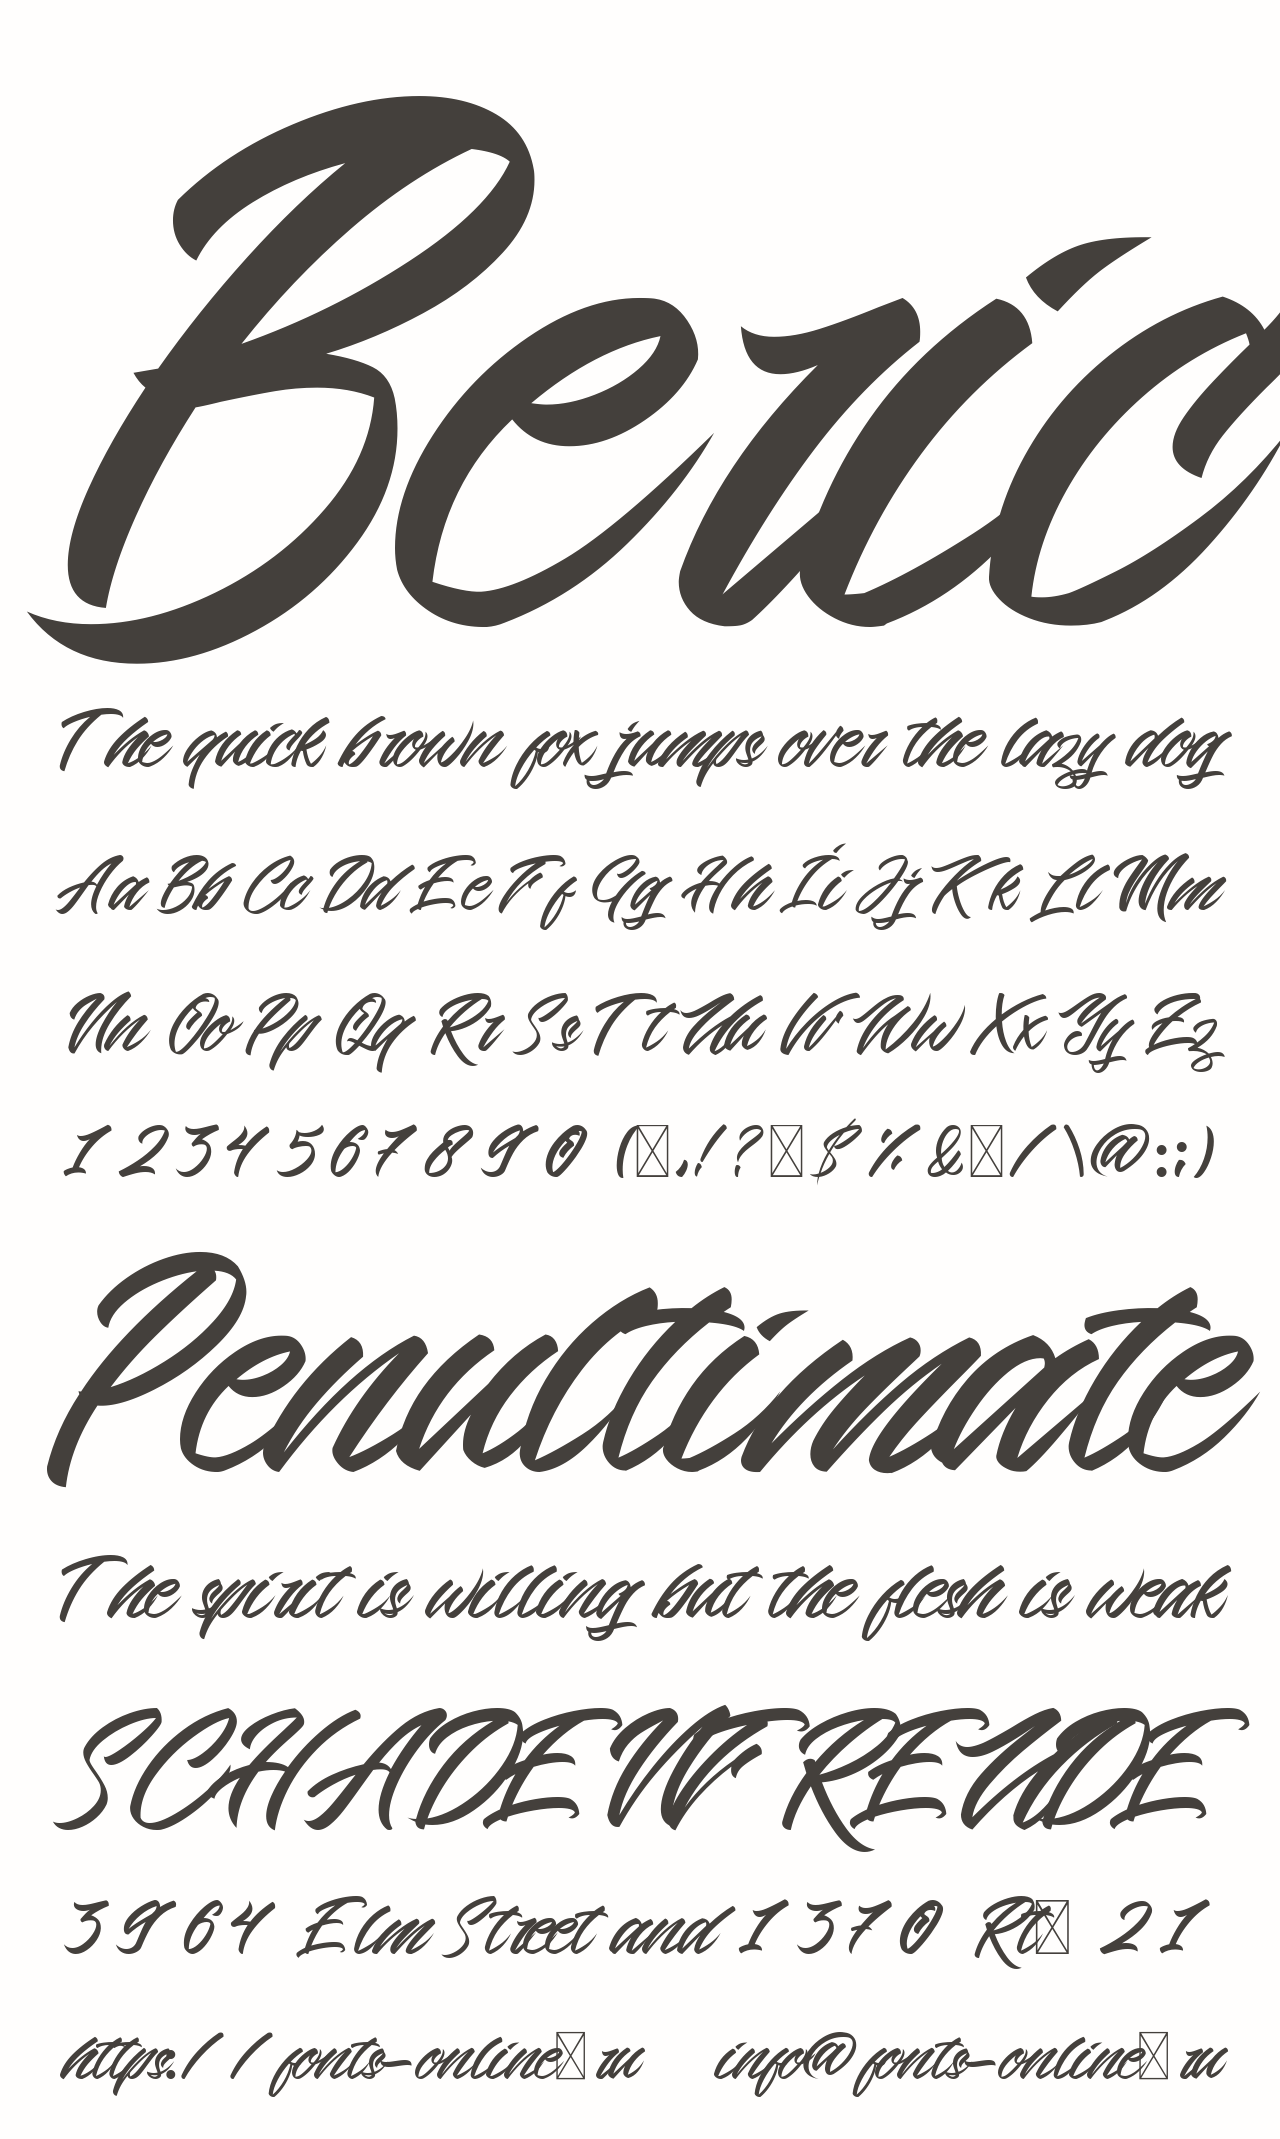 Beric
The quick brown fox jumps over the lazy dog
Aa Bb Cc Dd Ee Ff Gg Hh Ii Jj Kk Ll Mm
Nn Oo Pp Qq Rr Ss Tt Uu Vv Ww Xx Yy Zz
1 2 3 4 5 6 7 8 9 0 (,!?$%&/\@:;)
Penultimate
The spirit is willing but the flesh is weak
SCHADENFREUDE
3964 Elm Street and 1370 Rt 21
https://fonts-online ru info@fonts-online ru